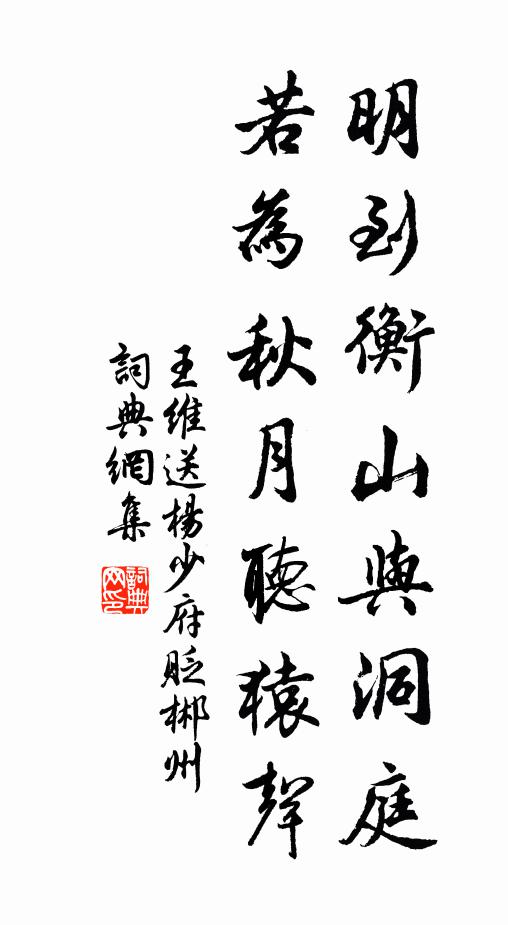 明到衡山與洞庭
若為秋月聽猿聲
王維送楊少府貶郴州
詞典網集
詞典网印